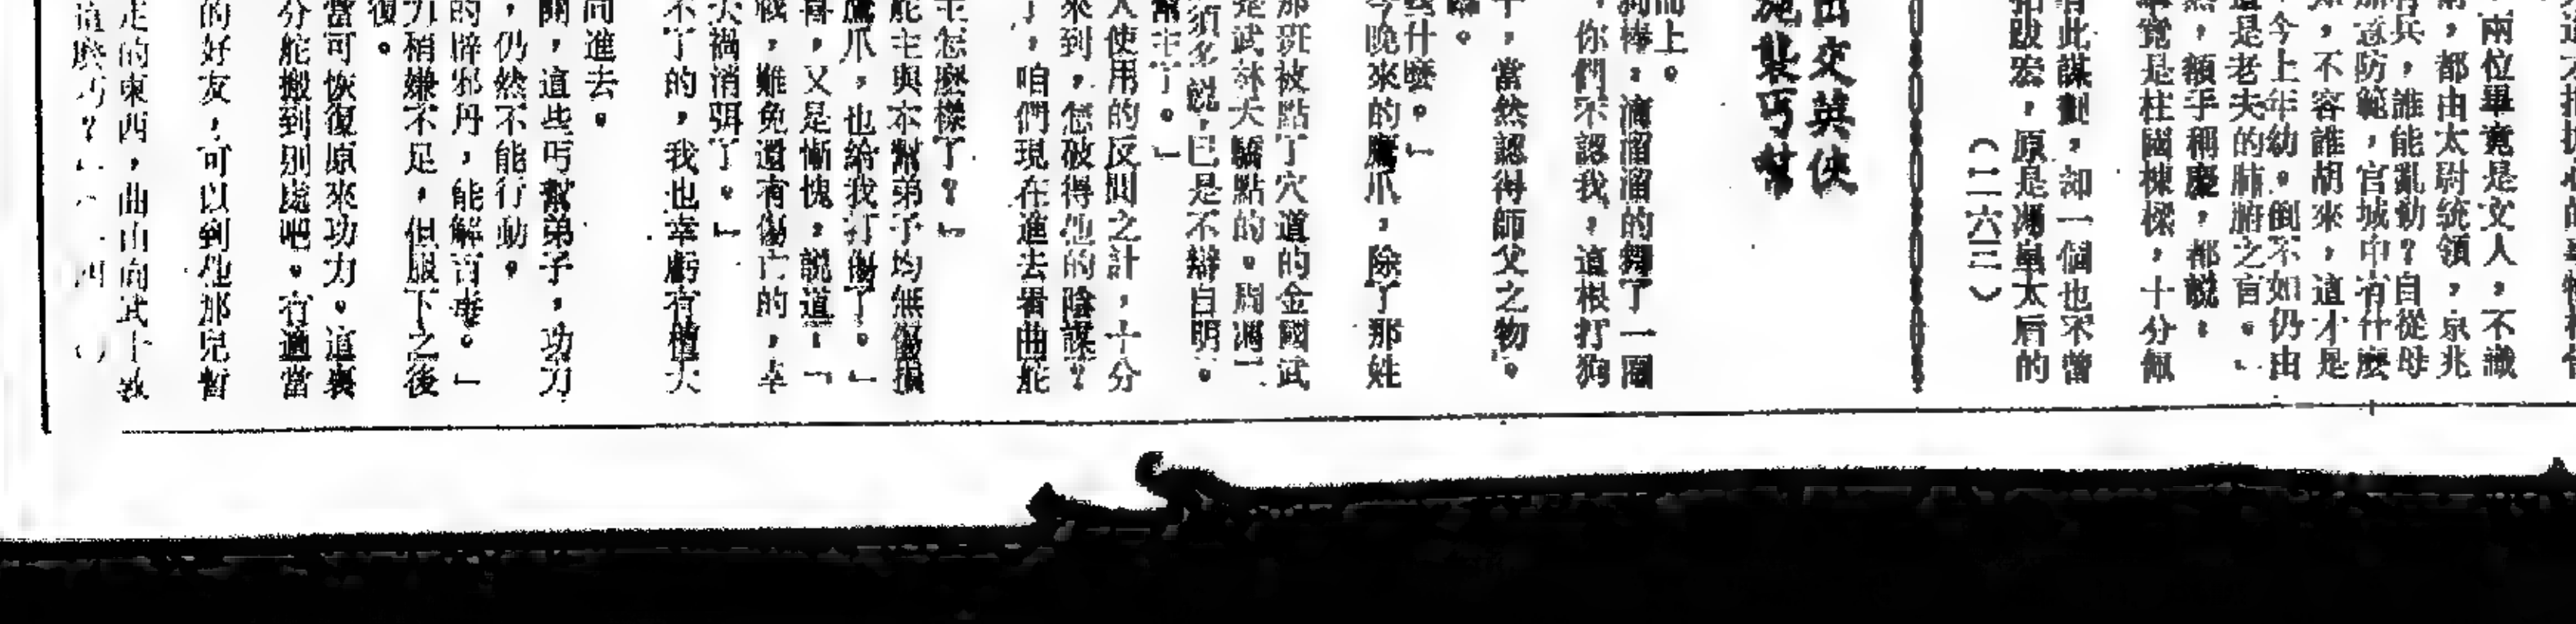 兩位畢竟是文人，不識
兵，都由太尉統領，京兆
有兵，誰能亂動？自從母
那意防範，官城中有什麼
，不容誰胡來，這才是
今上年幼。倒不如仍由
是老夫的肺腑之言。」
然，額手稱慶，都說：
畢竟是柱國棟樑，十分佩
有此謀劃，却一個也不曾
拓跋宏，原是馮皇太后的
（二六三）
出交英俠
施裝丐幫
而上。
狗棒，滴溜溜的舞了一圈
，你們不認我，這根打狗
中，當然認得師父之物。
今晚來的鷹爪，除了那姓
什麼。」
那班被點了穴道的金國武
是武林大驕點的。周馮二
須多說，已是不辯自明。
幫主了。」
人使用的反間之計，十分
來到，怎破得他的陰謀？
了，咱們現在進去看曲舵
主怎麼樣了？」
舵主與本幫弟子均無傷損
鷹爪，也給我打傷了。」
喜，又是慚愧，說道：「
戰，難免還有傷亡的，幸
大禍消弭了。」
不了的，我也幸虧有值大
同進去。
關，這些丐幫弟子，功力
，仍然不能行動。
的辟邪丹，能解百毒。」
力稍嫌不足，但服下之後
復。
當可恢復原來功力。這裏
分舵搬到別處吧。有適當
的好友，可以到他那兒暫
走的東西，曲由向武士敎
這麼巧？